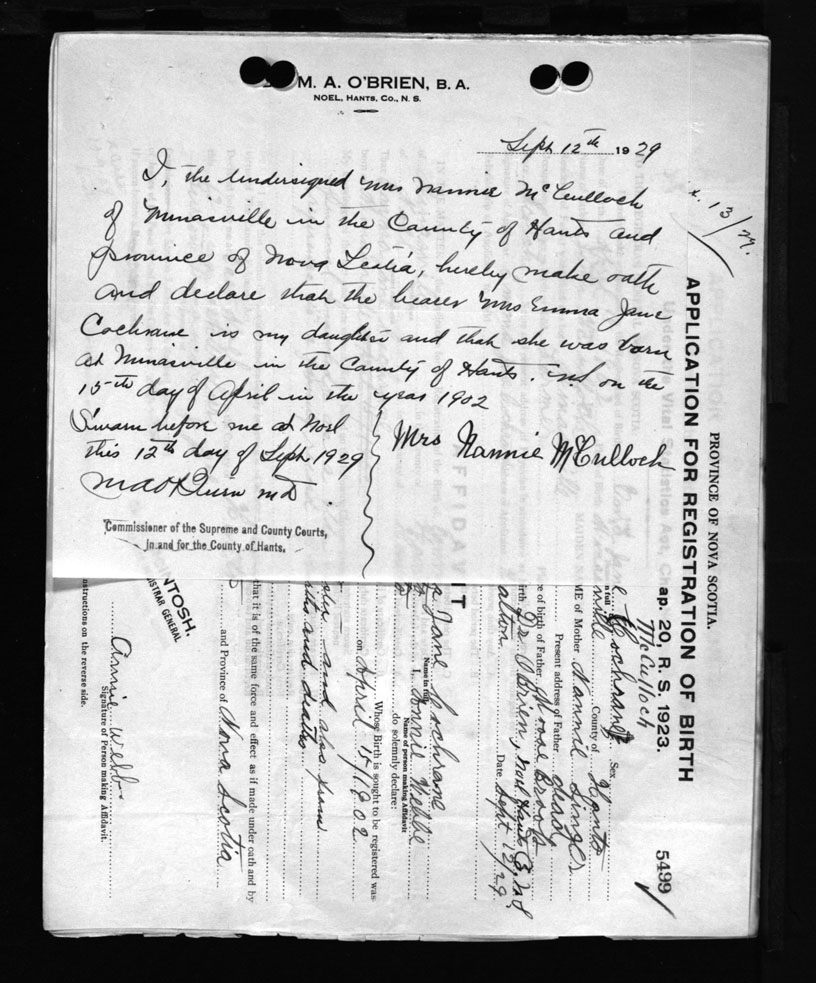 M. A. O'BRIEN, B. A.
NOEL, HANTS, CO., N. S.
Sept 12th 1929
I, the Undersigned Mrs Nannie McCulloch
of Minasville in the County of Hants and
province of Nova Scotia, hereby make oath
and declare that the bearer Mrs Emma Jane
Cochrane is my daughter and that she was born
at Minasville in the County of Hants. and on the
15th day of April in the year 1902
Sworn before me at Noel
this 12th day of Sept 1929
Mrs Nannie McCulloch
MAO'Brien MD
Commissioner of the Supreme and County Courts,
in and for the County of Hants.
13/29.
PROVINCE OF NOVA SCOTIA.
APPLICATION FOR REGISTRATION OF BIRTH
ap. 20, R. S. 1923.
5499
McCulloch
Jane Cochrane Sex
County of Hants
ME of Mother Nannie Singer
Present address of Father dead
ce of birth of Father Moose Brook
irth Dr. O'Brien, Noel Hants Co. N.S.
alton Date Sept 12/29
IT
Jane Cochrane
Name in full
I, Annie Webb
Name of person making Affidavit
do solemnly declare:
Whose Birth is sought to be registered was
on April 15/1902
births and deaths
that it is of the same force and effect as if made under oath and by
and Province of Nova Scotia
INTOSH.
ISTRAR GENERAL
Annie Webb
Signature of Person making Affidavit.
nstructions on the reverse side.